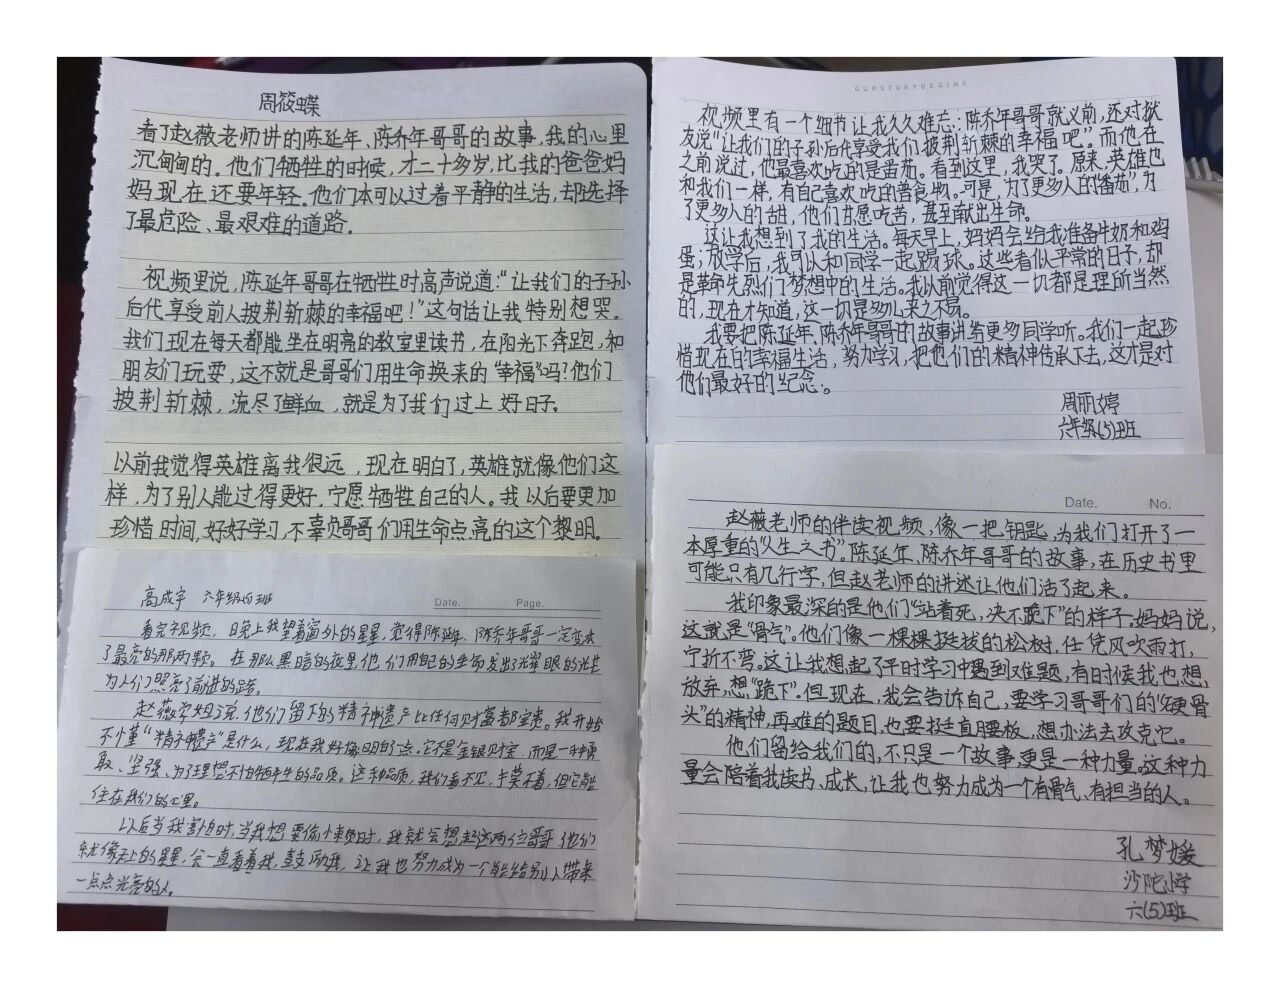 周筱蝶
看了赵薇老师讲的陈延年、陈乔年哥哥的故事,我的心里
沉甸甸的。他们牺牲的时候,才二十多岁,比我的爸爸妈
妈现在还要年轻。他们本可以过着平静的生活,却选择
了最危险、最艰难的道路。
视频里说,陈延年哥哥在牺牲时高声说道:“让我们的子孙
后代享受前人披荆斩棘的幸福吧!”这句话让我特别想哭。
我们现在每天都能坐在明亮的教室里读书,在阳光下奔跑,和
朋友们玩耍,这不就是哥哥们用生命换来的“幸福”吗!他们
披荆斩棘,流尽了鲜血,就是为了我们过上好日子。
以前我觉得英雄离我很远,现在明白了,英雄就像他们这
样,为了别人能过得更好,宁愿牺牲自己的人。我以后要更加
珍惜时间,好好学习,不辜负哥哥们用生命点亮的这个黎明。
高成宇 六年级(5)班
Date. Page.
看完视频,晚上我望着窗外的星星,觉得陈延年、陈乔年哥哥一定变成
了最亮的那两颗。在那么黑暗的夜里,他们用自己的生命发出了耀眼的光芒
为人们照亮了前进的路。
赵薇老师说,他们留下的精神遗产比任何财富都宝贵。我开始
不懂“精神遗产”是什么,现在我好像明白了点。它不是金银财宝,而是一种勇
敢、坚强、为了理想不怕牺牲的品质。这种品质,我们看不见,摸不着,但它能
住在我们的心里。
以后当我害怕时,当我想要偷懒时,我就会想起这两位哥哥,他们
就像天上的星星,会一直看着我,鼓励我,让我也努力成为一个能给别人带来
一点点光亮的人。
OURSTORYBEGINS
视频里有一个细节让我久久难忘:陈乔年哥哥就义前,还对狱
友说“让我们的子孙后代享受我们披荆斩棘的幸福吧”。而他在
之前说过,他最喜欢吃的是番茄。看到这里,我哭了。原来,英雄也
和我们一样,有自己喜欢吃的普食物。可是,为了更多人的“番茄”,为
了更多人的甜,他们甘愿吃苦,甚至献出生命。
这让我想到了我的生活。每天早上,妈妈会给我准备牛奶和鸡
蛋;放学后,我可以和同学一起踢球。这些看似平常的日子,却
是革命先烈们梦想中的生活。我以前觉得这一切都是理所当然
的,现在才知道,这一切是多么来之不易。
我要把陈延年、陈乔年哥哥的故事讲给更多同学听。我们一起珍
惜现在的幸福生活,努力学习,把他们的精神传承下去,这才是对
他们最好的纪念。
周雨婷
六年级(5)班
Date. No.
赵薇老师的伴读视频,像一把钥匙,为我们打开了一
本厚重的“人生之书”。陈延年、陈乔年哥哥的故事,在历史书里
可能只有几行字,但赵老师的讲述让他们活了起来。
我印象最深的是他们“站着死,决不跪下”的样子。妈妈说,
这就是“骨气”。他们像一棵棵挺拔的松树,任凭风吹雨打,
宁折不弯。这让我想起了平时学习中遇到难题,有时候我也想
放弃,想“跪下”。但现在,我会告诉自己,要学习哥哥们的“硬骨
头”的精神,再难的题目,也要挺直腰板,想办法去攻克它。
他们留给我们的,不只是一个故事,更是一种力量。这种力
量会陪着我读书、成长,让我也努力成为一个有骨气、有担当的人。
孔梦媛
沙陀小学
六(5)班